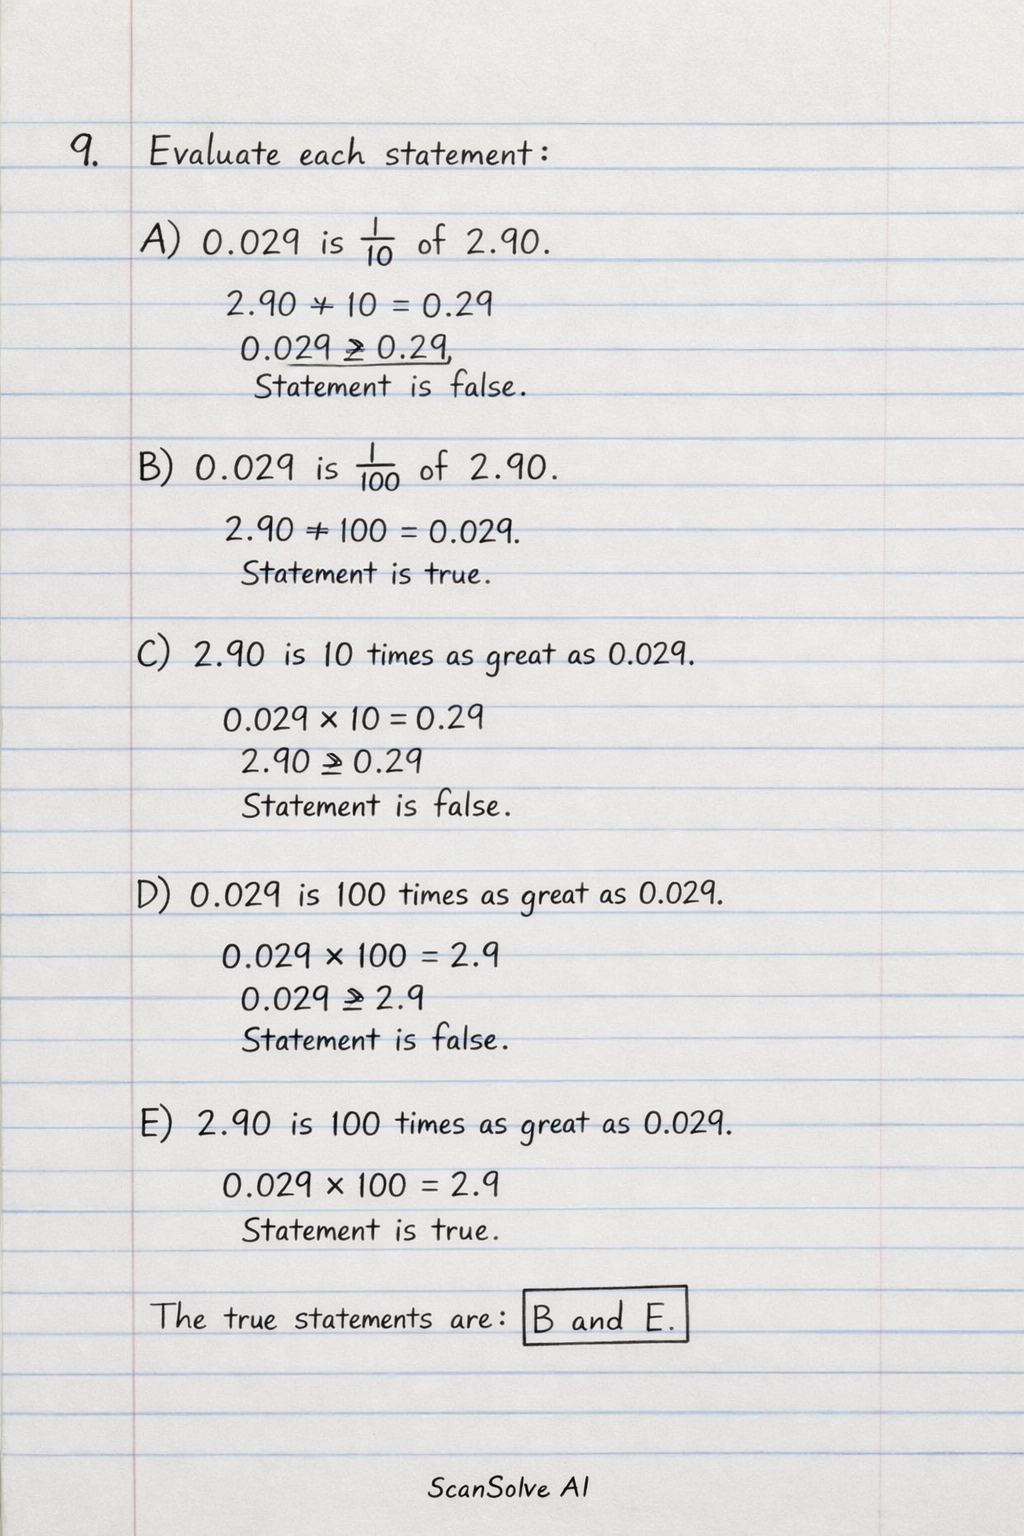 9. Evaluate each statement:
A) 0.029 is 1/10 of 2.90.
2.90 ÷ 10 = 0.29
0.029 ≠ 0.29,
Statement is false.
B) 0.029 is 1/100 of 2.90.
2.90 ÷ 100 = 0.029.
Statement is true.
C) 2.90 is 10 times as great as 0.029.
0.029 × 10 = 0.29
2.90 ≠ 0.29
Statement is false.
D) 0.029 is 100 times as great as 0.029.
0.029 × 100 = 2.9
0.029 ≠ 2.9
Statement is false.
E) 2.90 is 100 times as great as 0.029.
0.029 × 100 = 2.9
Statement is true.
The true statements are: B and E.
ScanSolve AI